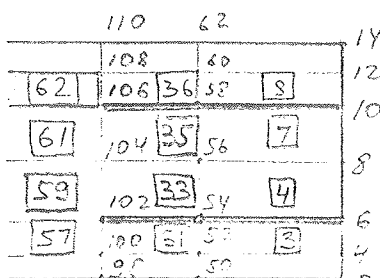 110 62
14
108 60
12
62 106 36 58 8
10
61 104 35 56 7
8
59 102 33 54 4
6
57 100 31 52 3
4
98 50